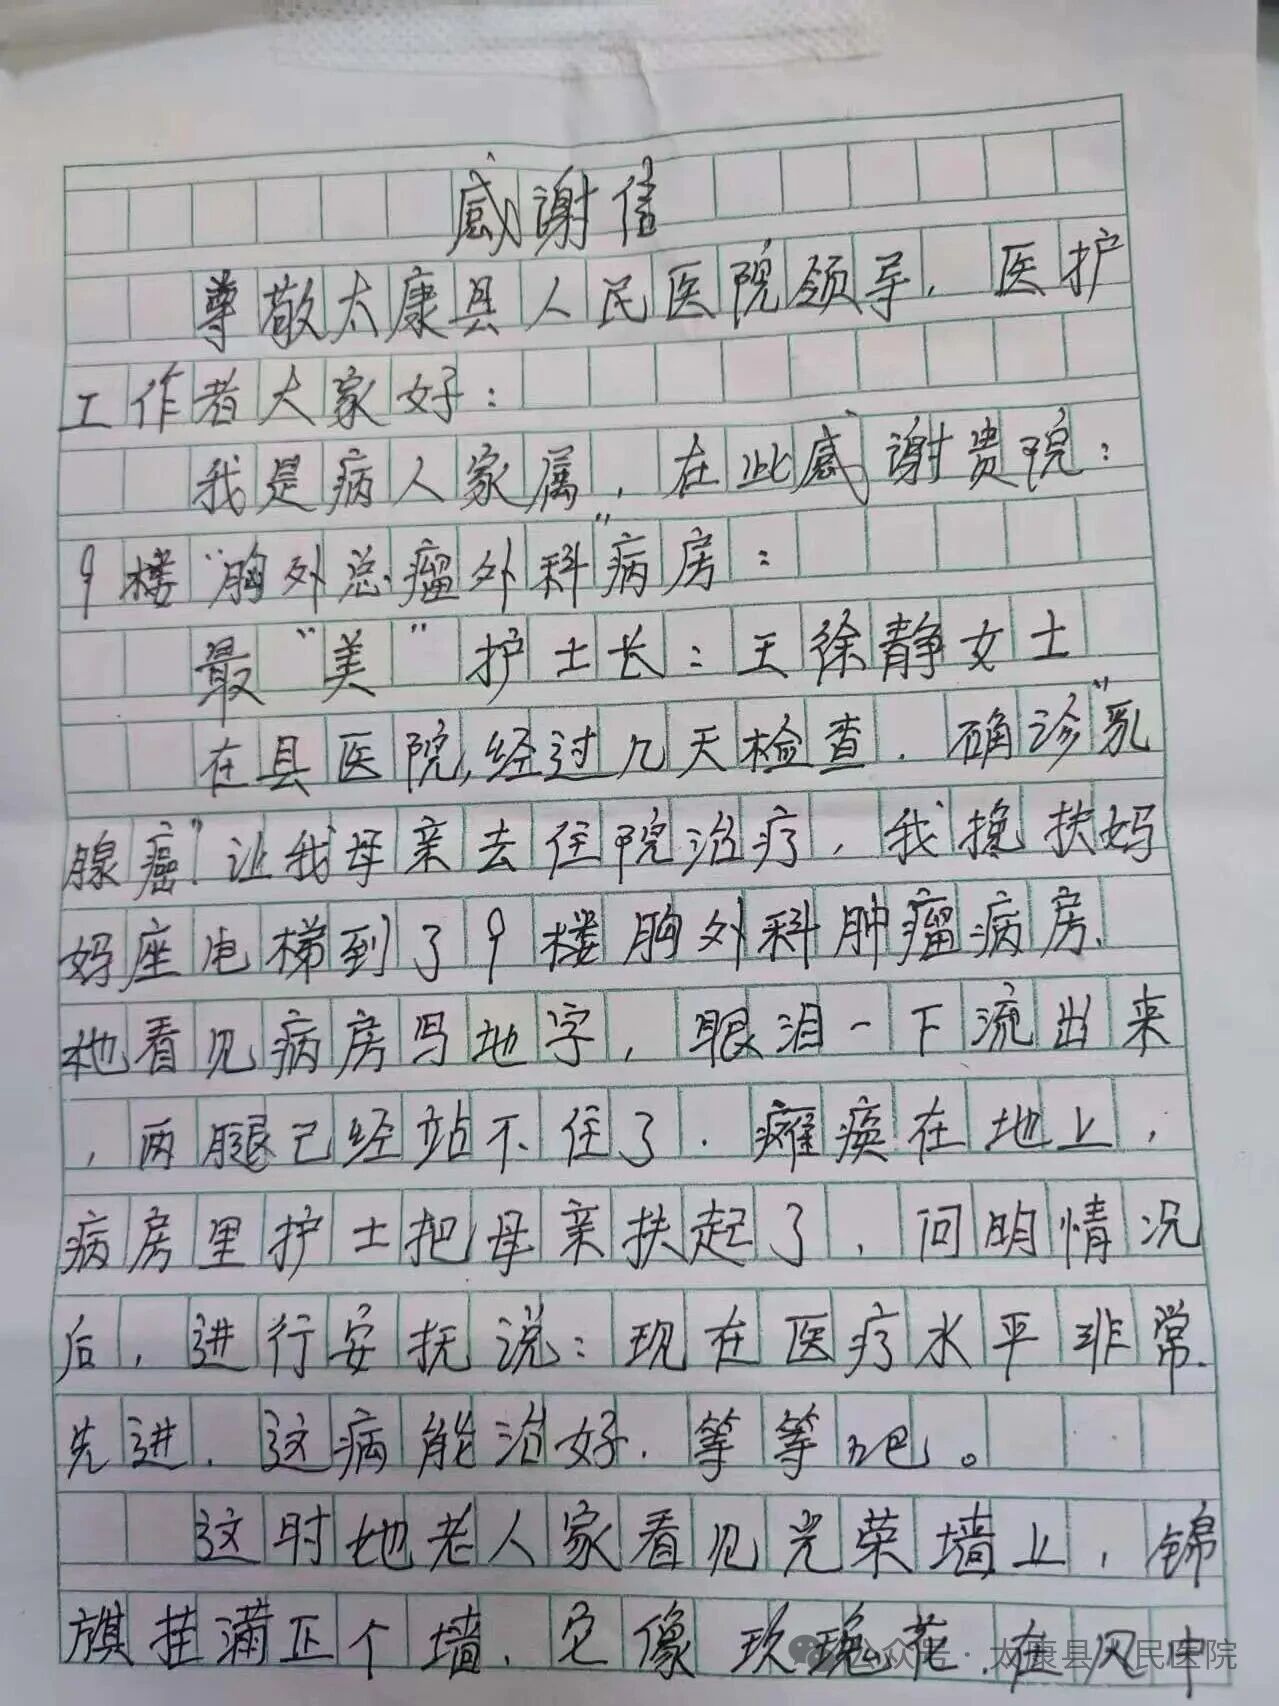 感谢信
尊敬太康县人民医院领导，医护
工作者大家好：
我是病人家属，在此感谢贵院：
9楼“胸外总.瘤外科”病房：
最“美”护士长：王徐静女士
在县医院,经过几天检查.确诊“乳
腺癌”.让我母亲去住院治疗,我搀扶妈
妈座电梯到了9楼胸外科肿瘤病房.
她看见病房写地字,眼泪一下流出来
,两腿已经站不住了.瘫痪在地上,
病房里护士把母亲扶起了,问明情况
后,进行安抚说:现在医疗水平非常.
先进.这病能治好.等等吧。
这时她老人家看见光荣墙上,锦
旗挂满正个墙.它像玫瑰花.在风中
公众号·太康县人民医院